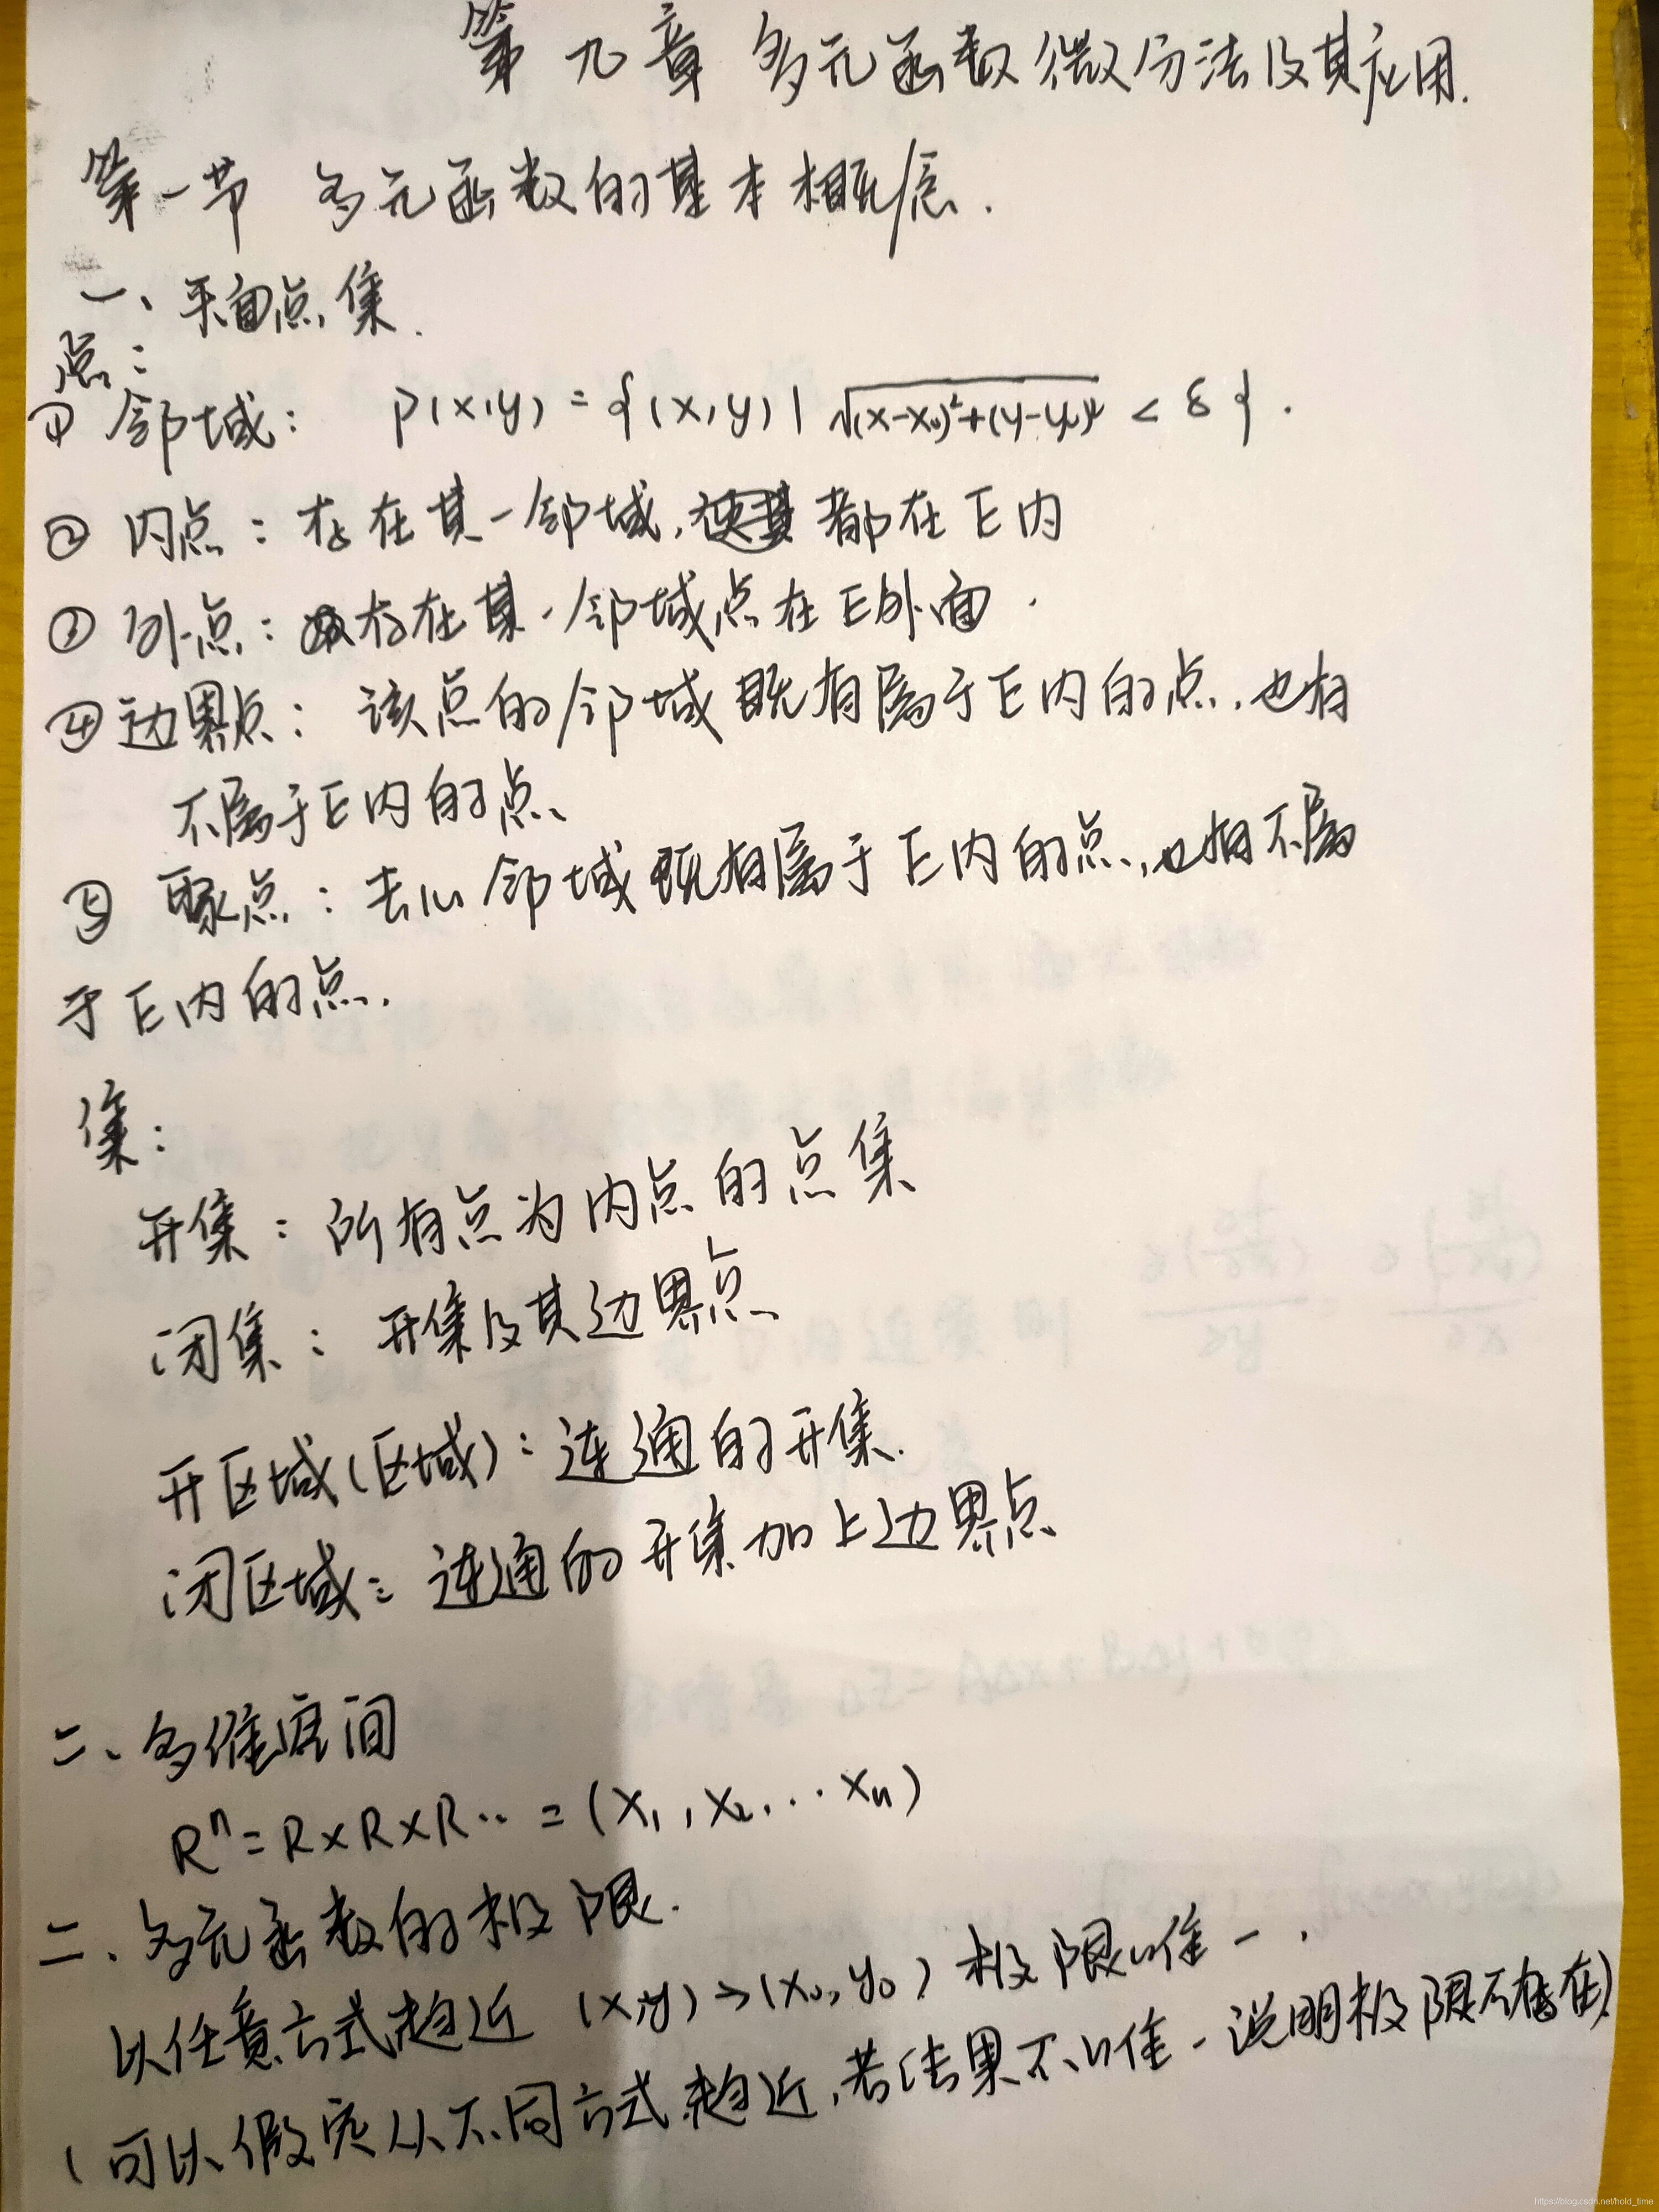 第九章 多元函数微分法及其应用.
第一节 多元函数的基本概念.
一、平面点集.
点:
① 邻域: P(x,y) = {(x,y) | √(x-x₀)²+(y-y₀)² < δ}.
② 内点: 存在某一邻域, 都在E内
③ 外点: 存在某一邻域点在E外面.
④ 边界点: 该点的邻域既有属于E内的点, 也有
不属于E内的点、
⑤ 聚点: 去心邻域既有属于E内的点, 也有不属
于E内的点.
集:
开集: 所有点为内点的点集
闭集: 开集及其边界点
开区域(区域): 连通的开集.
闭区域: 连通的开集加上边界点
二、多维空间
Rⁿ=R×R×R‥ = (x₁,x₂,‥xₙ)
二、多元函数的极限.
以任意方式趋近 (x,y)→(x₀,y₀) 极限唯一.
(可以假定从不同方式趋近,若结果不唯一说明极限不存在)
https://blog.csdn.net/hold_time